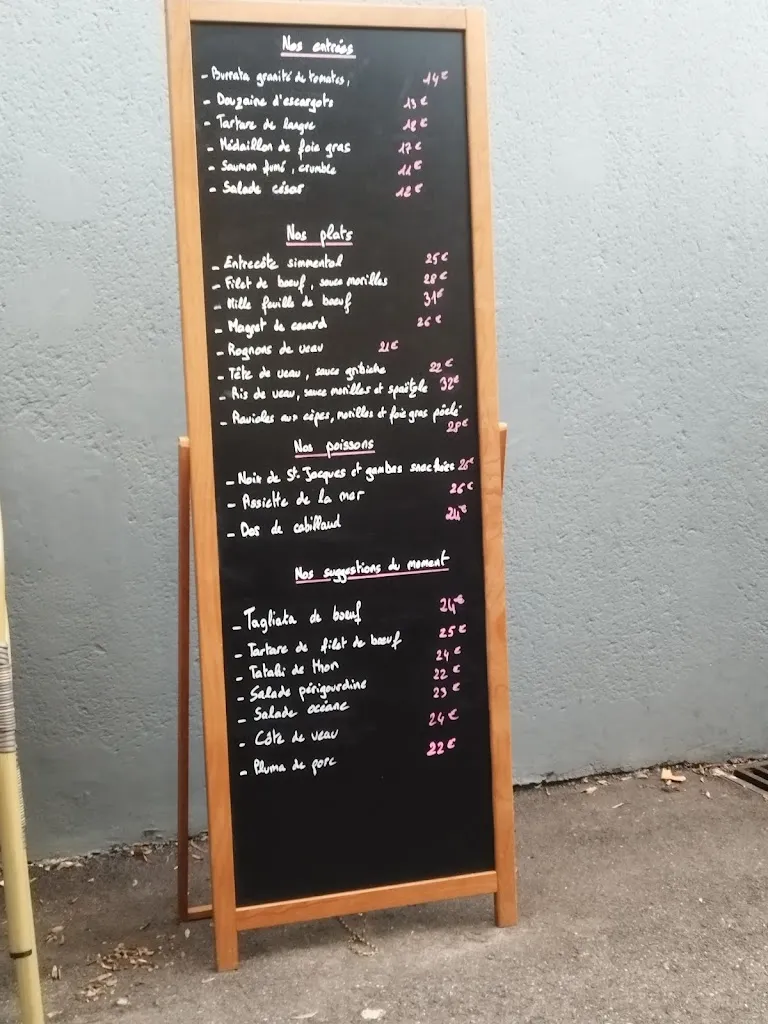 Nos entrées
- Burrata granité de tomates, 14€
- Douzaine d'escargots 13€
- Tartare de langue 18€
- Médaillon de foie gras 17€
- Saumon fumé, crumble 11€
- Salade césar 12€
Nos plats
- Entrecôte simmental 25€
- Filet de boeuf, sauce morilles 28€
- Mille feuille de boeuf 31€
- Magret de canard 26€
- Rognons de veau 21€
- Tête de veau, sauce gribiche 22€
- Ris de veau, sauce morilles et spaëtzle 32€
- Ravioles aux cèpes, morilles et foie gras pôelé
28€
Nos poissons
- Noix de St-Jacques et gambas snackées 25€
- Assiette de la mer 26€
- Dos de cabillaud 24€
Nos suggestions du moment
- Tagliata de boeuf 24€
- Tartare de filet de boeuf 25€
- Tataki de thon 24€
- Salade périgourdine 22€
- Salade océane 23€
- Côte de veau 24€
- Pluma de porc 22€